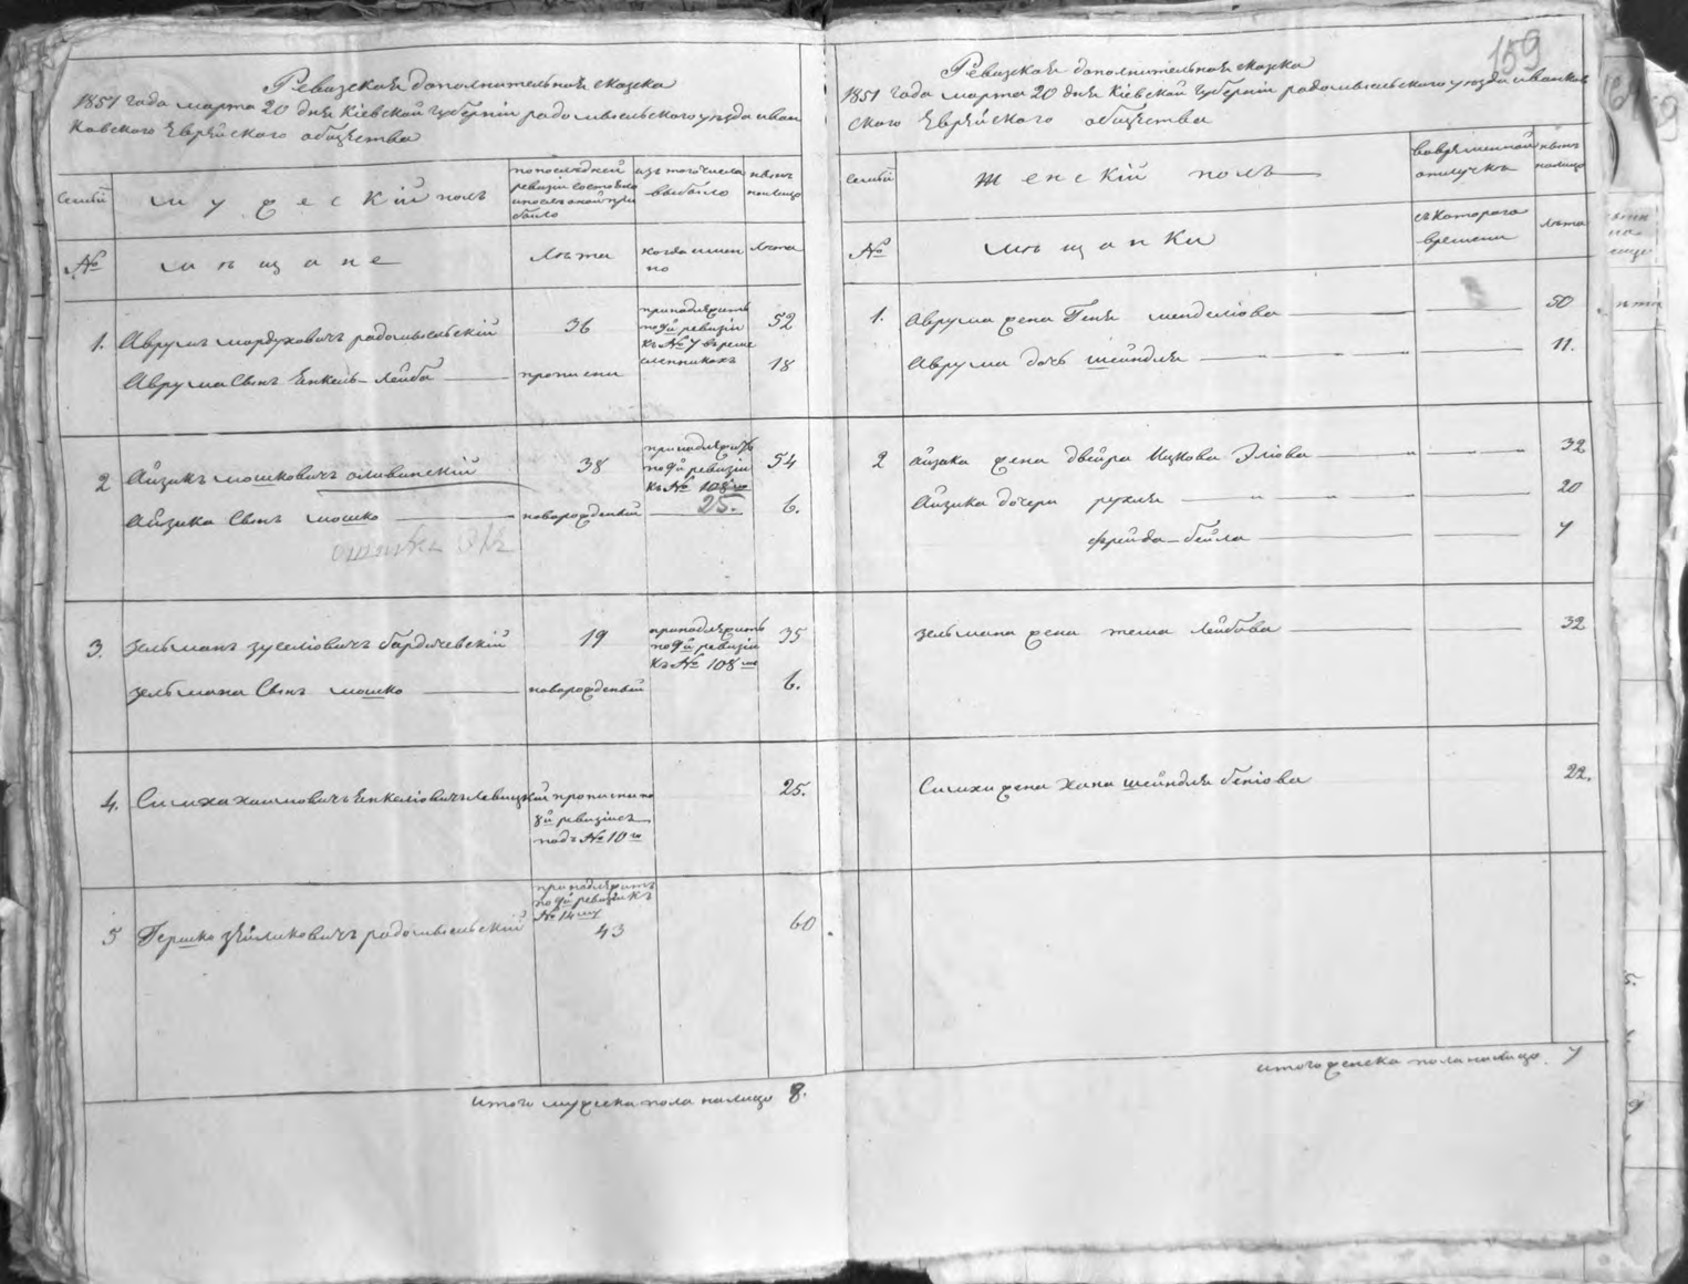 Ревизская дополнительная сказка
1851 года марта 20 дня Кіевской Губерніи радомысльского уезда иван
ковского Еврейского общества
семьи
мужескій полъ
по последней
ревизіи состояло
и после оной при
было
изъ того числа
выбыло
ныне
налицо
№
мещане
Лета
когда имен
но
Лета
1. Аврумъ мордуховичъ радомысльскій
36
принадлежитъ
по 9й ревизіи
къ № 7 въ реме
сленникахъ
52
Аврума Сынъ Енкель-Лейба
прописни
18
2 Айзикъ мошковичъ оливинскій
38
принадлежитъ
по 9й ревизіи
къ № 108 му
54
Айзика Сынъ мошко
новорожденый
25.
6.
3. Зельманъ зуселіовичъ бардичевскій
19
принадлежитъ
по 9й ревизіи
къ № 108 му
35
Зельмана Сынъ мошко
новорожденый
6.
4. Симха хаимовичъ Енкеліовичъ Левицкій прописни по
25.
8й ревизіи
подъ № 10 м
принадлежитъ
по 9й ревизіи къ
№ 14 му
5 Гершко зеиликовичъ радомысльскій
43
60
итого мужеска пола налицо 8.
159
Ревизская дополнительная сказка
1851 года марта 20 дня Кіевской Губерніи радомысльского уезда иванков
ского Еврейского общества
семьи
женскій полъ
во временной
отлучке
ныне
налицо
№
мещанки
съ которого
времени
Лета
1. Аврума жена Геня менделіова
50
Аврума дочь шейндля
11.
2 Айзика жена двейра Ицкова Эліова
32
Айзика дочери рухля
20
фрейда-бейла
7
Зельмана жена тема Лейбова
32
Симхи жена Хана шейндля беніова
22.
итого женска пола налицо. 7